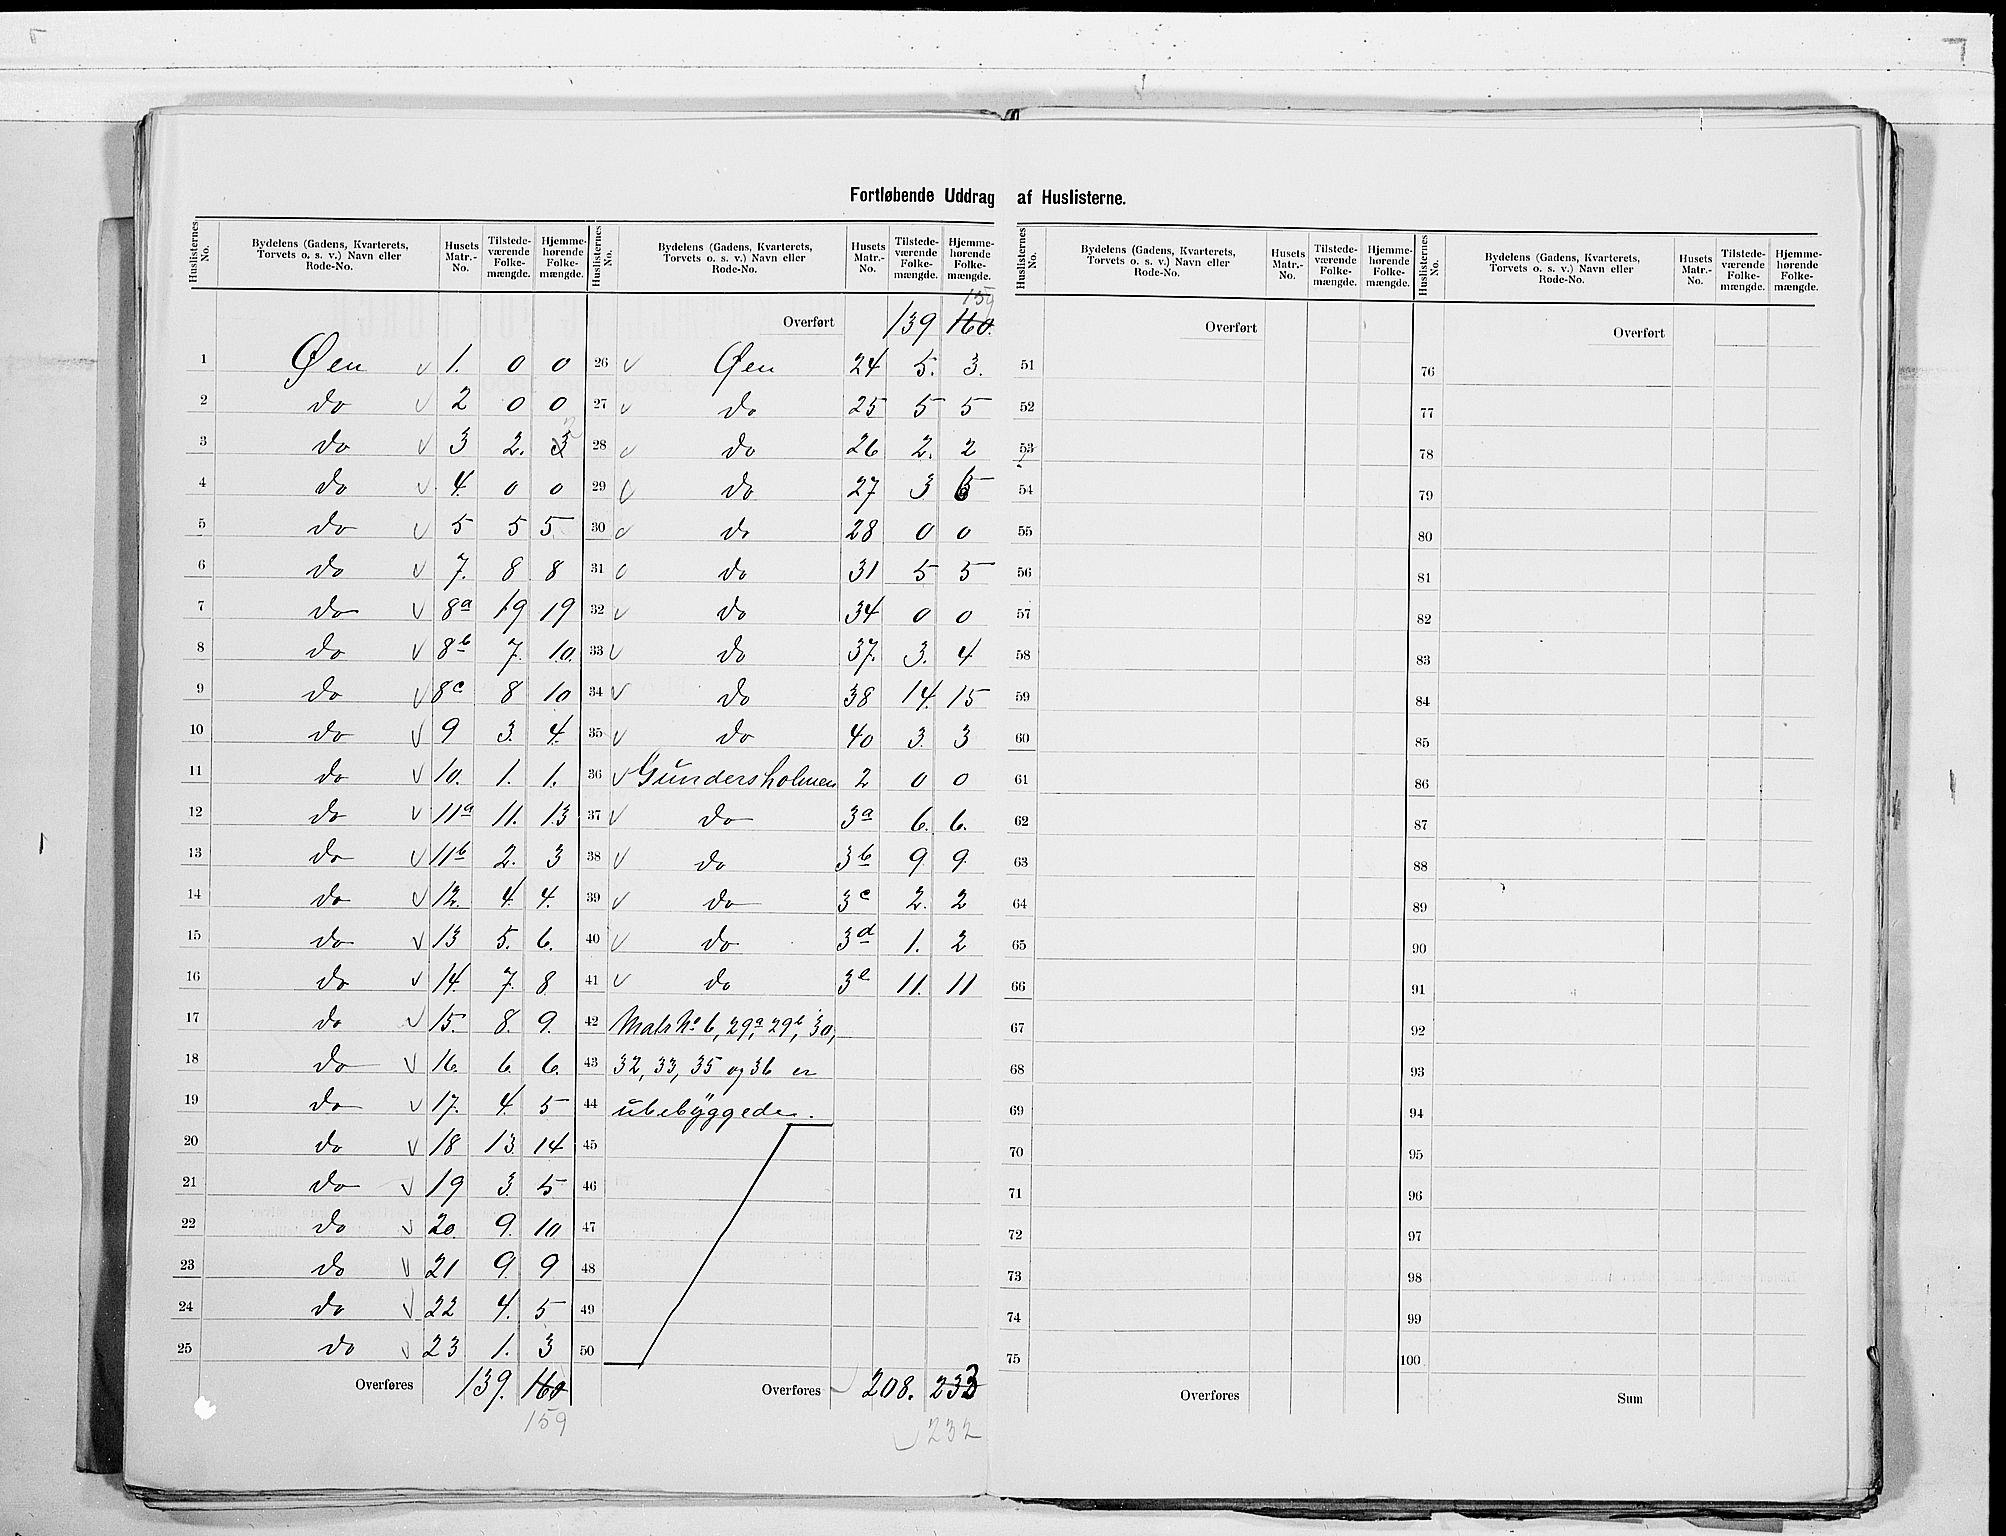 Fortløbende Uddrag af Huslisterne.
Huslisternes No. | Bydelens (Gadens, Kvarterets, Torvets o. s. v.) Navn eller Rode-No. | Husets Matr.-No. | Tilstedeværende Folkemængde. | Hjemmehørende Folkemængde.
1 Øen v 1. 0 0
2 do v 2 0 0
3 do v 3 2. 3 2
4 do v 4. 0 0
5 do v 5 5 5
6 do v 7. 8 8
7 do v 8a 19 19
8 do v 8b 7. 10.
9 do v 8c 8 10
10 do v 9 3. 4.
11 do v 10. 1. 1.
12 do v 11a 11. 13
13 do v 11b 2. 3
14 do v 12. 4. 4.
15 do v 13 5. 6.
16 do v 14. 7. 8
17 do v 15. 8. 9.
18 do v 16. 6. 6.
19 do v 17. 4. 5
20 do v 18 13. 14
21 do v 19 3. 5
22 do v 20. 9. 10
23 do v 21 9. 9
24 do v 22 4. 5
25 do v 23 1. 3
Overføres 139. 160
159
Huslisternes No. | Bydelens (Gadens, Kvarterets, Torvets o. s. v.) Navn eller Rode-No. | Husets Matr.-No. | Tilstedeværende Folkemængde. | Hjemmehørende Folkemængde.
159
Overført 139 160.
26 v Øen 24 5. 3.
27 v do 25 5 5
28 v do 26 2. 2
29 v do 27 3
30 v do 28 0 0
31 v do 31 5 5
32 v do 34 0 0
33 v do 37. 3. 4
34 v do 38 14. 15
35 v do 40 3. 3
36 v Gundersholmen 2 0 0
37 v do 3a 6. 6.
38 v do 3b 9 9.
39 v do 3c 2. 2
40 v do 3d 1. 2
41 v do 3e 11. 11
42 Matr No 6, 29a, 29b, 30,
43 32, 33, 35 og 36 er
44 ubebyggede.
45
46
47
48
49
50
Overføres 208. 233
v 232
Huslisternes No. | Bydelens (Gadens, Kvarterets, Torvets o. s. v.) Navn eller Rode-No. | Husets Matr.-No. | Tilstedeværende Folkemængde. | Hjemmehørende Folkemængde.
Overført
51
52
53
54
55
56
57
58
59
60
61
62
63
64
65
66
67
68
69
70
71
72
73
74
75
Overføres
Huslisternes No. | Bydelens (Gadens, Kvarterets, Torvets o. s. v.) Navn eller Rode-No. | Husets Matr.-No. | Tilstedeværende Folkemængde. | Hjemmehørende Folkemængde.
Overført
76
77
78
79
80
81
82
83
84
85
86
87
88
89
90
91
92
93
94
95
96
97
98
99
100
Sum